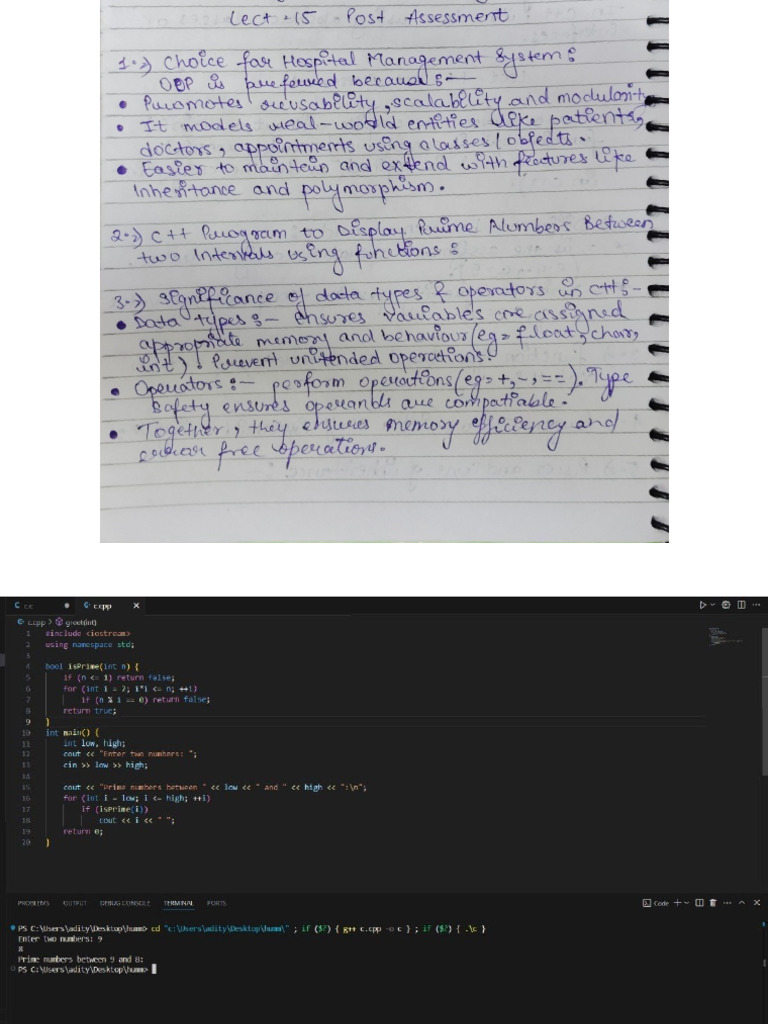 Lect-15 Post Assessment
1.) Choice for Hospital Management System:
OOP is preferred because:-
• Promotes reusability, scalability and modularity
• It models real-world entities like patients,
doctors, appointments using classes/objects.
• Easier to maintain and extend with features like
Inheritance and polymorphism.
2.) C++ Program to Display Prime Numbers Between
two Intervals using functions:
3.) Significance of data types & operators in C++:-
• Data types:- ensures variables are assigned
appropriate memory and behaviour (eg= float, char,
int). Prevent unintended operations.
• Operators:- perform operations (eg= +, -, ==). Type
Safety ensures operands are compatiable.
• Together, they ensures memory efficiency and
error free operations.
c.c ● c.cpp ×
c.cpp > greet(int)
1 #include <iostream>
2 using namespace std;
3
4 bool isPrime(int n) {
5 if (n <= 1) return false;
6 for (int i = 2; i*i <= n; ++i)
7 if (n % i == 0) return false;
8 return true;
9 }
10 int main() {
11 int low, high;
12 cout << "Enter two numbers: ";
13 cin >> low >> high;
14
15 cout << "Prime numbers between " << low << " and " << high << ":\n";
16 for (int i = low; i <= high; ++i)
17 if (isPrime(i))
18 cout << i << " ";
19 return 0;
20 }
PROBLEMS OUTPUT DEBUG CONSOLE TERMINAL PORTS Code
PS C:\Users\adity\Desktop\humm> cd "c:\Users\adity\Desktop\humm\" ; if ($?) { g++ c.cpp -o c } ; if ($?) { .\c }
Enter two numbers: 9
8
Prime numbers between 9 and 8:
PS C:\Users\adity\Desktop\humm>